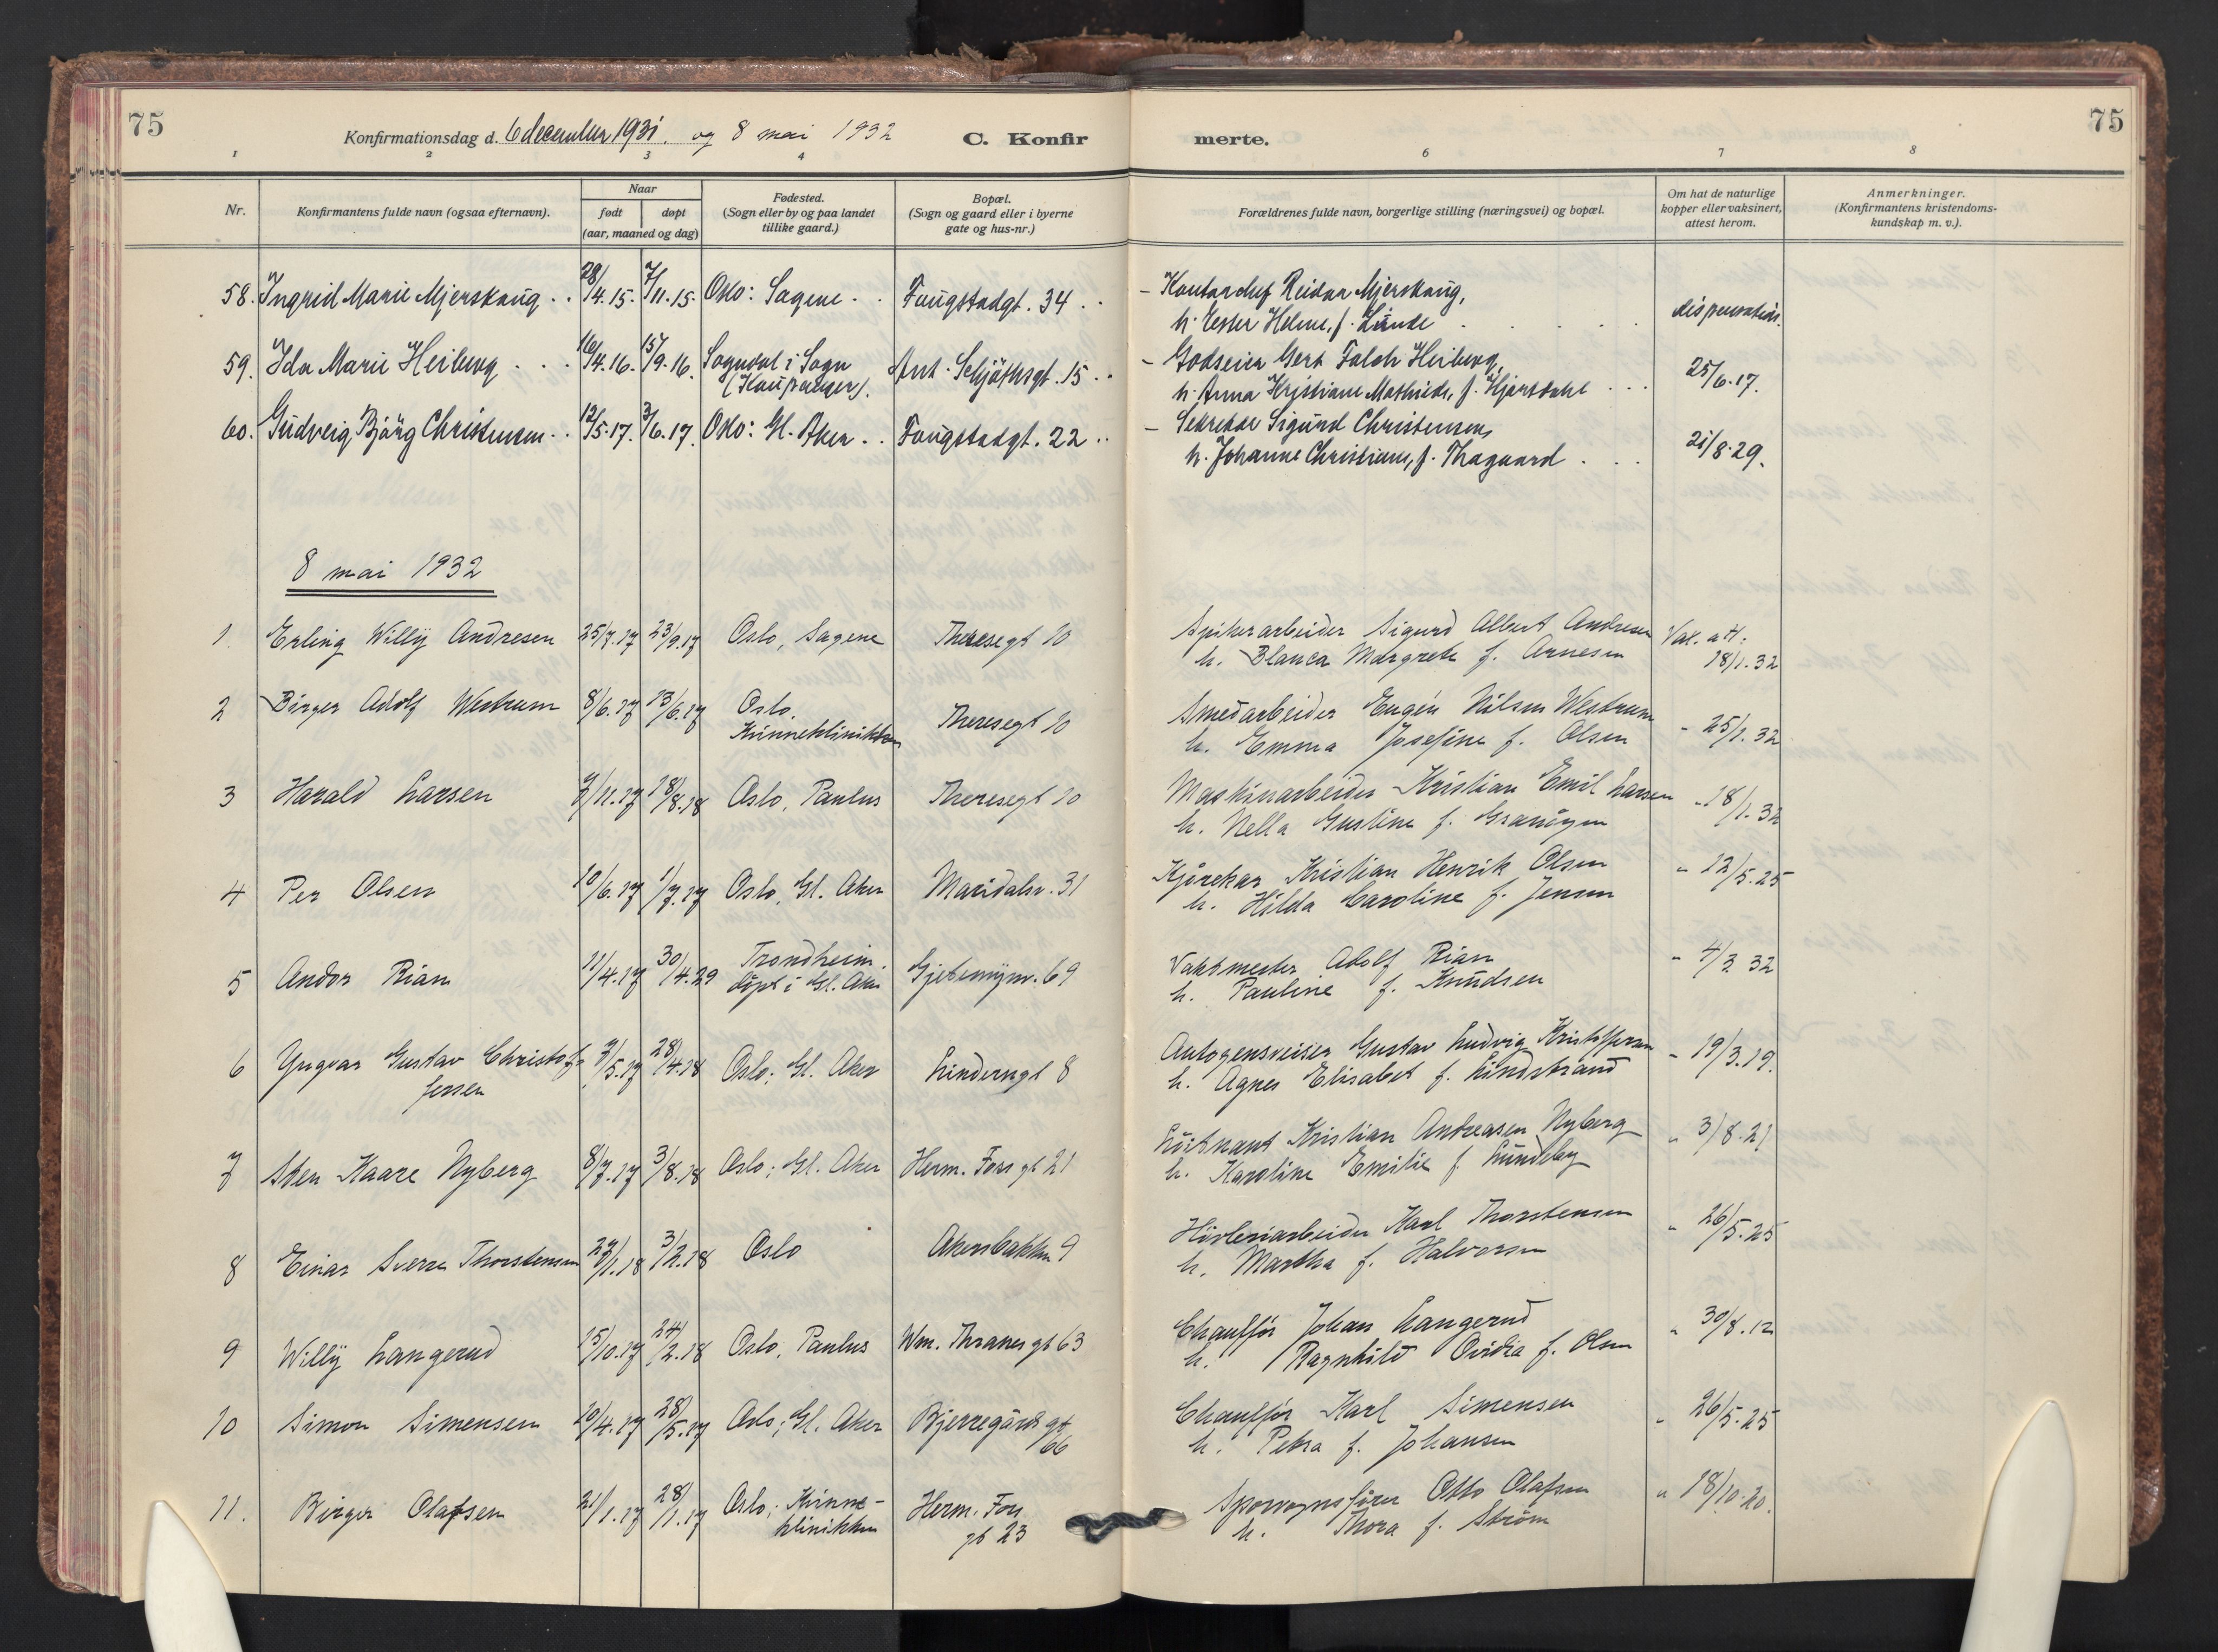 75
Konfirmationsdag d. 6 december 1931. og 8 mai 1932
C. Konfirmerte.
75
1 2 3 4 6 7 8
Nr.
Konfirmantens fulde navn (ogsaa efternavn).
Naar
født
døpt
(aar, maaned og dag)
Fødested.
(Sogn eller by og paa landet
tillike gaard.)
Bopæl.
(Sogn og gaard eller i byerne
gate og hus-nr.)
Forældrenes fulde navn, borgerlige stilling (næringsvei) og bopæl.
Om hat de naturlige
kopper eller vaksinert,
attest herom.
Anmerkninger.
(Konfirmantens kristendoms-
kundskap m. v.).
58. Ingrid Marie Mjerskaug . . 28/4.15. 7/11.15. Oslo: Sagene . . Faugstadgt. 34 . .
- Kontorchef Reidar Mjerskaug,
h. Ester Helene, f. Linde . . . . .
dispensation.
59. Ida Marie Heiberg . . . 16/4.16. 15/9.16. Sogndal i Sogn
(Kaupanger). Ant. Schjöthsgt. 15 . .
- Godseier Gert Falch Heiberg,
h. Anna Kristiane Mathilde, f. Hjorsdahl . . .
25/6.17.
60. Gudveig Björg Christensen . . 12/5.17. 3/6.17. Oslo: Gl. Aker . . Faugstadgt. 22 . .
- Sekretær Sigurd Christensen,
h. Johanne Christiane, f. Thagaard . . .
21/8.29.
8 mai 1932
1. Erling Willy Andresen 25/7.17 23/9.17 Oslo, Sagene Theresegt 10
Spikerarbeider Sigurd Albert Andresen
h. Blanca Margrete f. Arnesen
Vak. att.
18/1.32
2 Birger Adolf Westrum 8/6.17 13/6.17 Oslo,
Kvinneklinikken Theresegt 10
Smedarbeider Eugén Nilsen Westrum
h. Emma Josefine f. Olsen
- 25/1.32
3 Harald Larsen 9/11.17 18/8.18 Oslo, Paulus Theresegt 10
Maskinarbeider Kristian Emil Larsen
h. Nella Gustine f.
- 18/1.32
4 Per Olsen 10/6.17 1/7.17 Oslo, Gl. Aker Maridalsv. 31
Kjørekar Kristian Henrik Olsen
h. Hilda Caroline f. Jensen
- 12/5.25
5 Andor Rian 11/4.17 30/4.29 Trondheim.
døpt i Gl. Aker Gjetemyrsv. 69
Vaktmester Adolf Rian
h. Pauline f. Knudsen
- 4/3 32
6 Yngvar Gustav Christof-
fersen 7/5.17 28/4.18 Oslo; Gl. Aker Linderngt 8
Autogensveiser Gustav Ludvig Kristoffersen
h. Agnes Elisabet f. Lindstrand
- 19/3.19.
7 Sten Kaare Nyberg 8/7.17 3/8.18 Oslo; Gl. Aker Herm. Foss gt 21
Løitnant Kristian Andreasen Nyberg
h. Karoline Emilie f. Lundeby
- 3/8.21
8 Einar Sverre Thorstensen 27/1.18 3/2.18 Oslo Akersbakken 9
Høvleriarbeider Karl Thorstensen
h. Martha f. Halvorsen
- 26/5.25
9 Willy Langerud 15/10.17 24/2.18 Oslo, Paulus Wm. Thranes gt 63
Chauffør Johan Langerud
h. Ragnhild Ovidia f. Olsen
- 30/8.12
10 Simon Simensen 10/4.17 28/5.17 Oslo; Gl. Aker Bjerregårds gt
66
Chauffør Karl Simensen
h. Petra f. Johansen
- 26/5.25
11. Birger Olafsen 21/1.17 28/1.17 Oslo; Kvinne-
klinikken Herm. Foss
gt 23
Sporvognsfører Otto Olafsen
h. Thora f. Strøm
- 18/10.20.